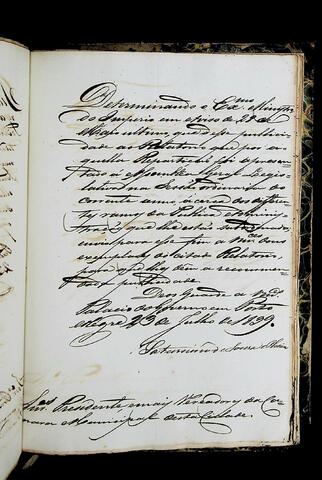 Determinando o Exmo Ministro
do Imperio em aviso de 28 de
Maio ultimo, que désse publici-
dade ao Relatorio que por a-
quella Repartição foi apresen-
tado á Assembléa Geral Legis-
lativa na Sessão Ordinaria do
corrente anno á cerca dos differen-
tes ramos da Publica Adminis-
tração, que lhe está
para esse fim a Vmces dous
exemplares do citado Relatorio
para que lhe dem a recommen-
dada publicidade.
Deos Guarde a Vmces
Palacio do Governo em Porto
Alegre 23 de Julho de 1839.
Saturnino de Souza e Oliveira
Snres Presidente, e mais Vereadores da Ca-
mara Municipal desta Cidade.